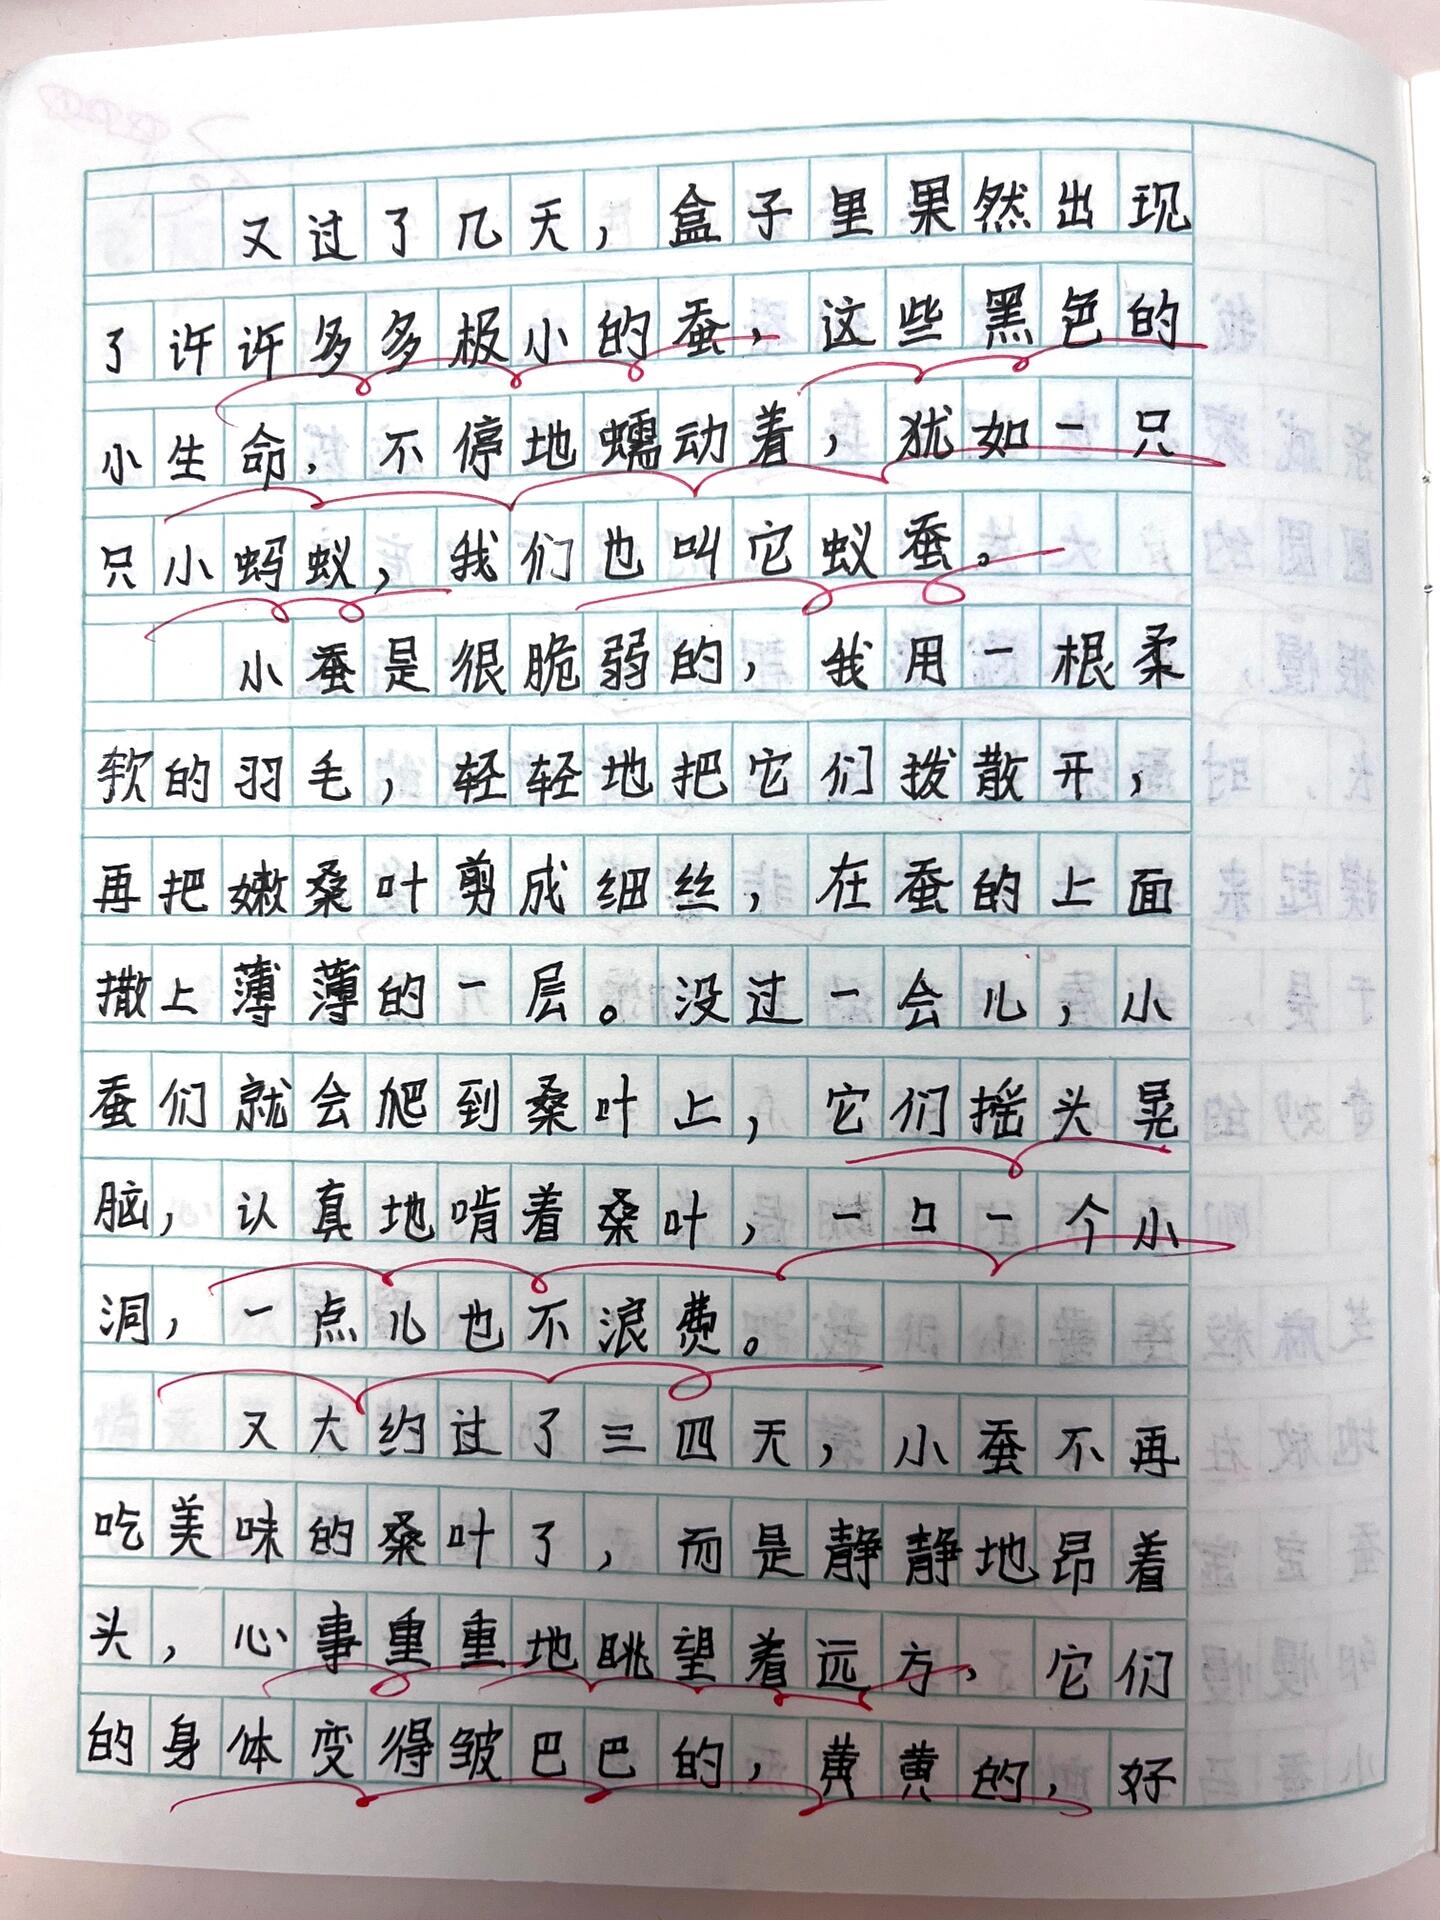 又过了几天，盒子里果然出现
了许许多多极小的蚕，这些黑色的
小生命，不停地蠕动着，犹如一只
只小蚂蚁，我们也叫它蚁蚕。
小蚕是很脆弱的，我用一根柔
软的羽毛，轻轻地把它们拨散开，
再把嫩桑叶剪成细丝，在蚕的上面
撒上薄薄的一层。没过一会儿，小
蚕们就会爬到桑叶上，它们摇头晃
脑，认真地啃着桑叶，一口一个小
洞，一点儿也不浪费。
又大约过了三四天，小蚕不再
吃美味的桑叶了，而是静静地昂着
头，心事重重地眺望着远方，它们
的身体变得皱巴巴的，黄黄的，好